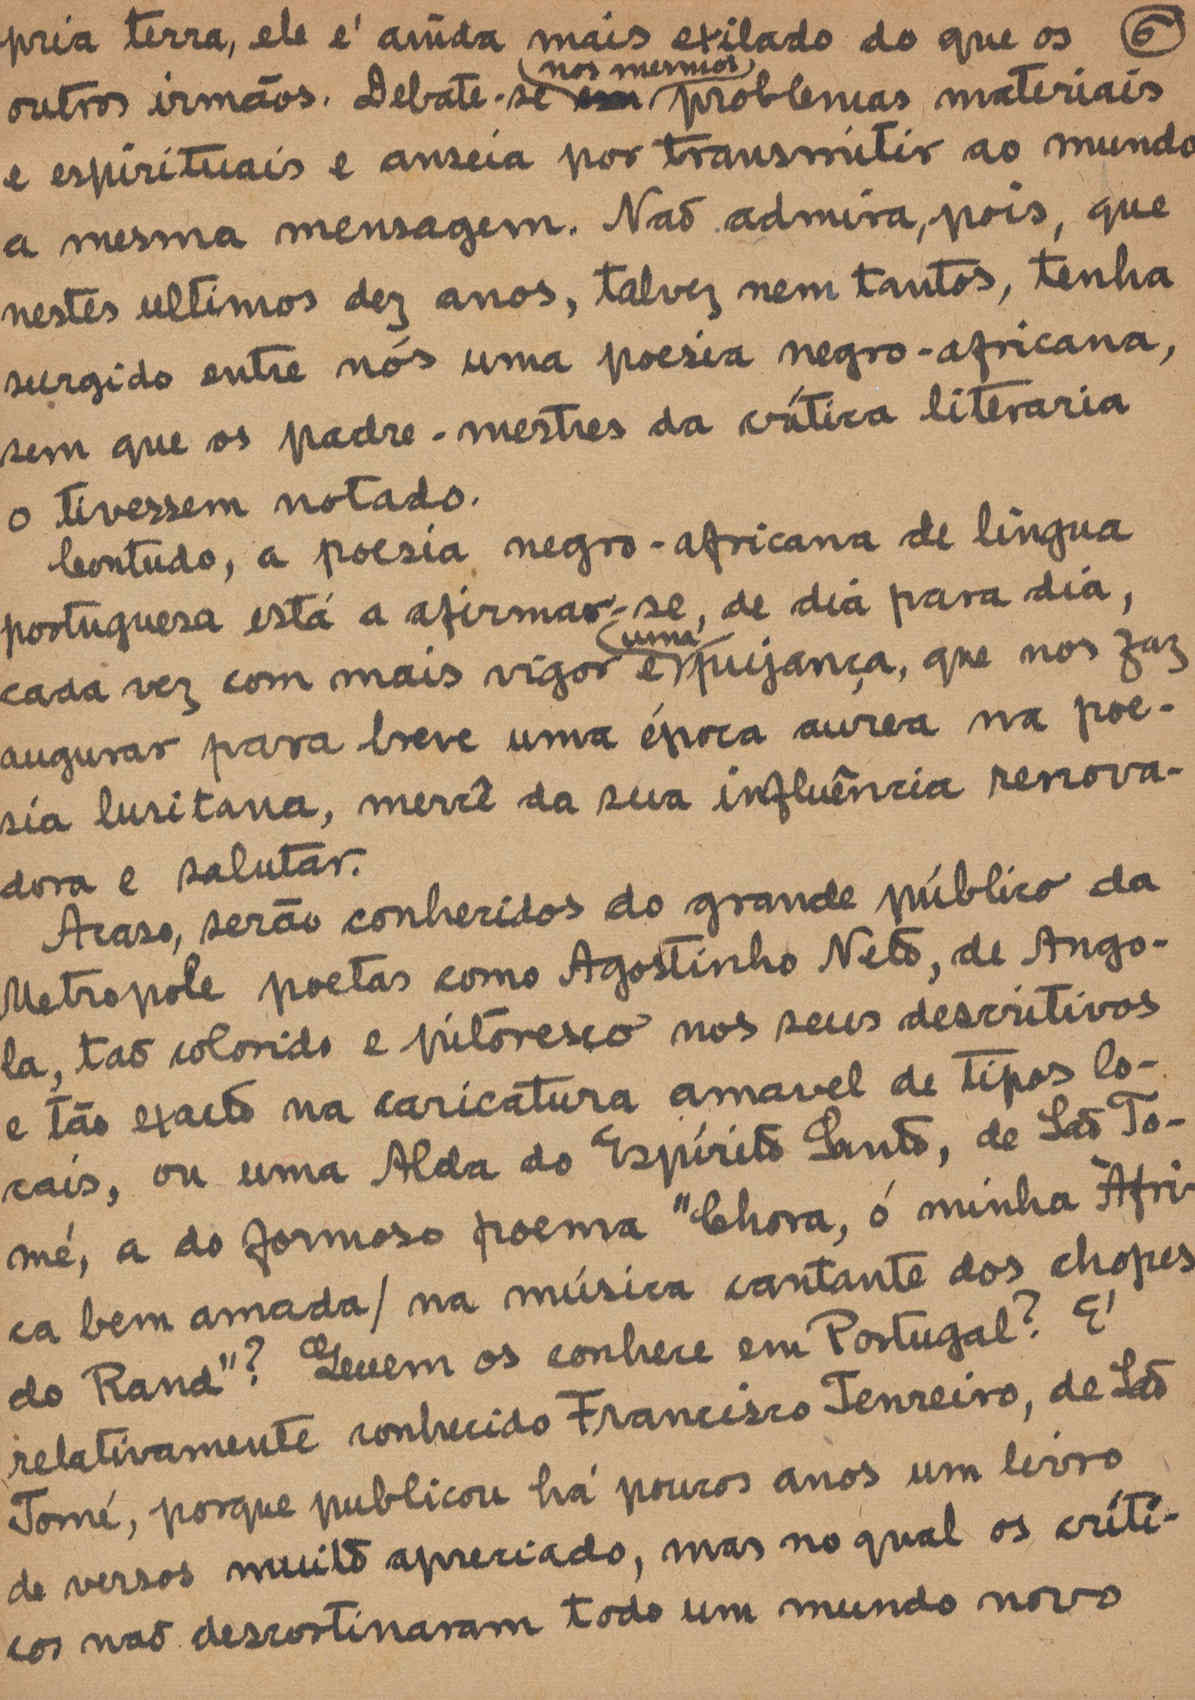 pria terra, ele é ainda mais exilado do que os 6
nos mesmos
outros irmãos. Debate-se problemas materiais
e espirituais e anseia por transmitir ao mundo
a mesma mensagem. Não admira, pois, que
nestes ultimos dez anos, talvez nem tantos, tenha
surgido entre nós uma poesia negro-africana,
sem que os padre-mestres da crítica literaria
o tivessem notado.
Contudo, a poesia negro-africana de língua
portuguesa está a afirmar-se, de dia para dia,
uma
cada vez com mais vigor e pujança, que nos faz
augurar para breve uma época aurea na poe-
sia lusitana, mercê da sua influência renova-
dora e salutar.
Acaso, serão conhecidos do grande público da
Metropole poetas como Agostinho Neto, de Ango-
la, tão colorido e pitoresco nos seus descritivos
e tão exacto na caricatura amavel de tipos lo-
cais, ou uma Alda do Espírito Santo, de São To-
mé, a do formoso poema "Chora, ó minha Áfri-
ca bem amada/ na música cantante dos chopes
do Rand"? Quem os conhece em Portugal? É
relativamente conhecido Francisco Tenreiro, de São
Tomé, porque publicou há poucos anos um livro
de versos muito apreciado, mas no qual os críti-
cos não descortinaram todo um mundo novo